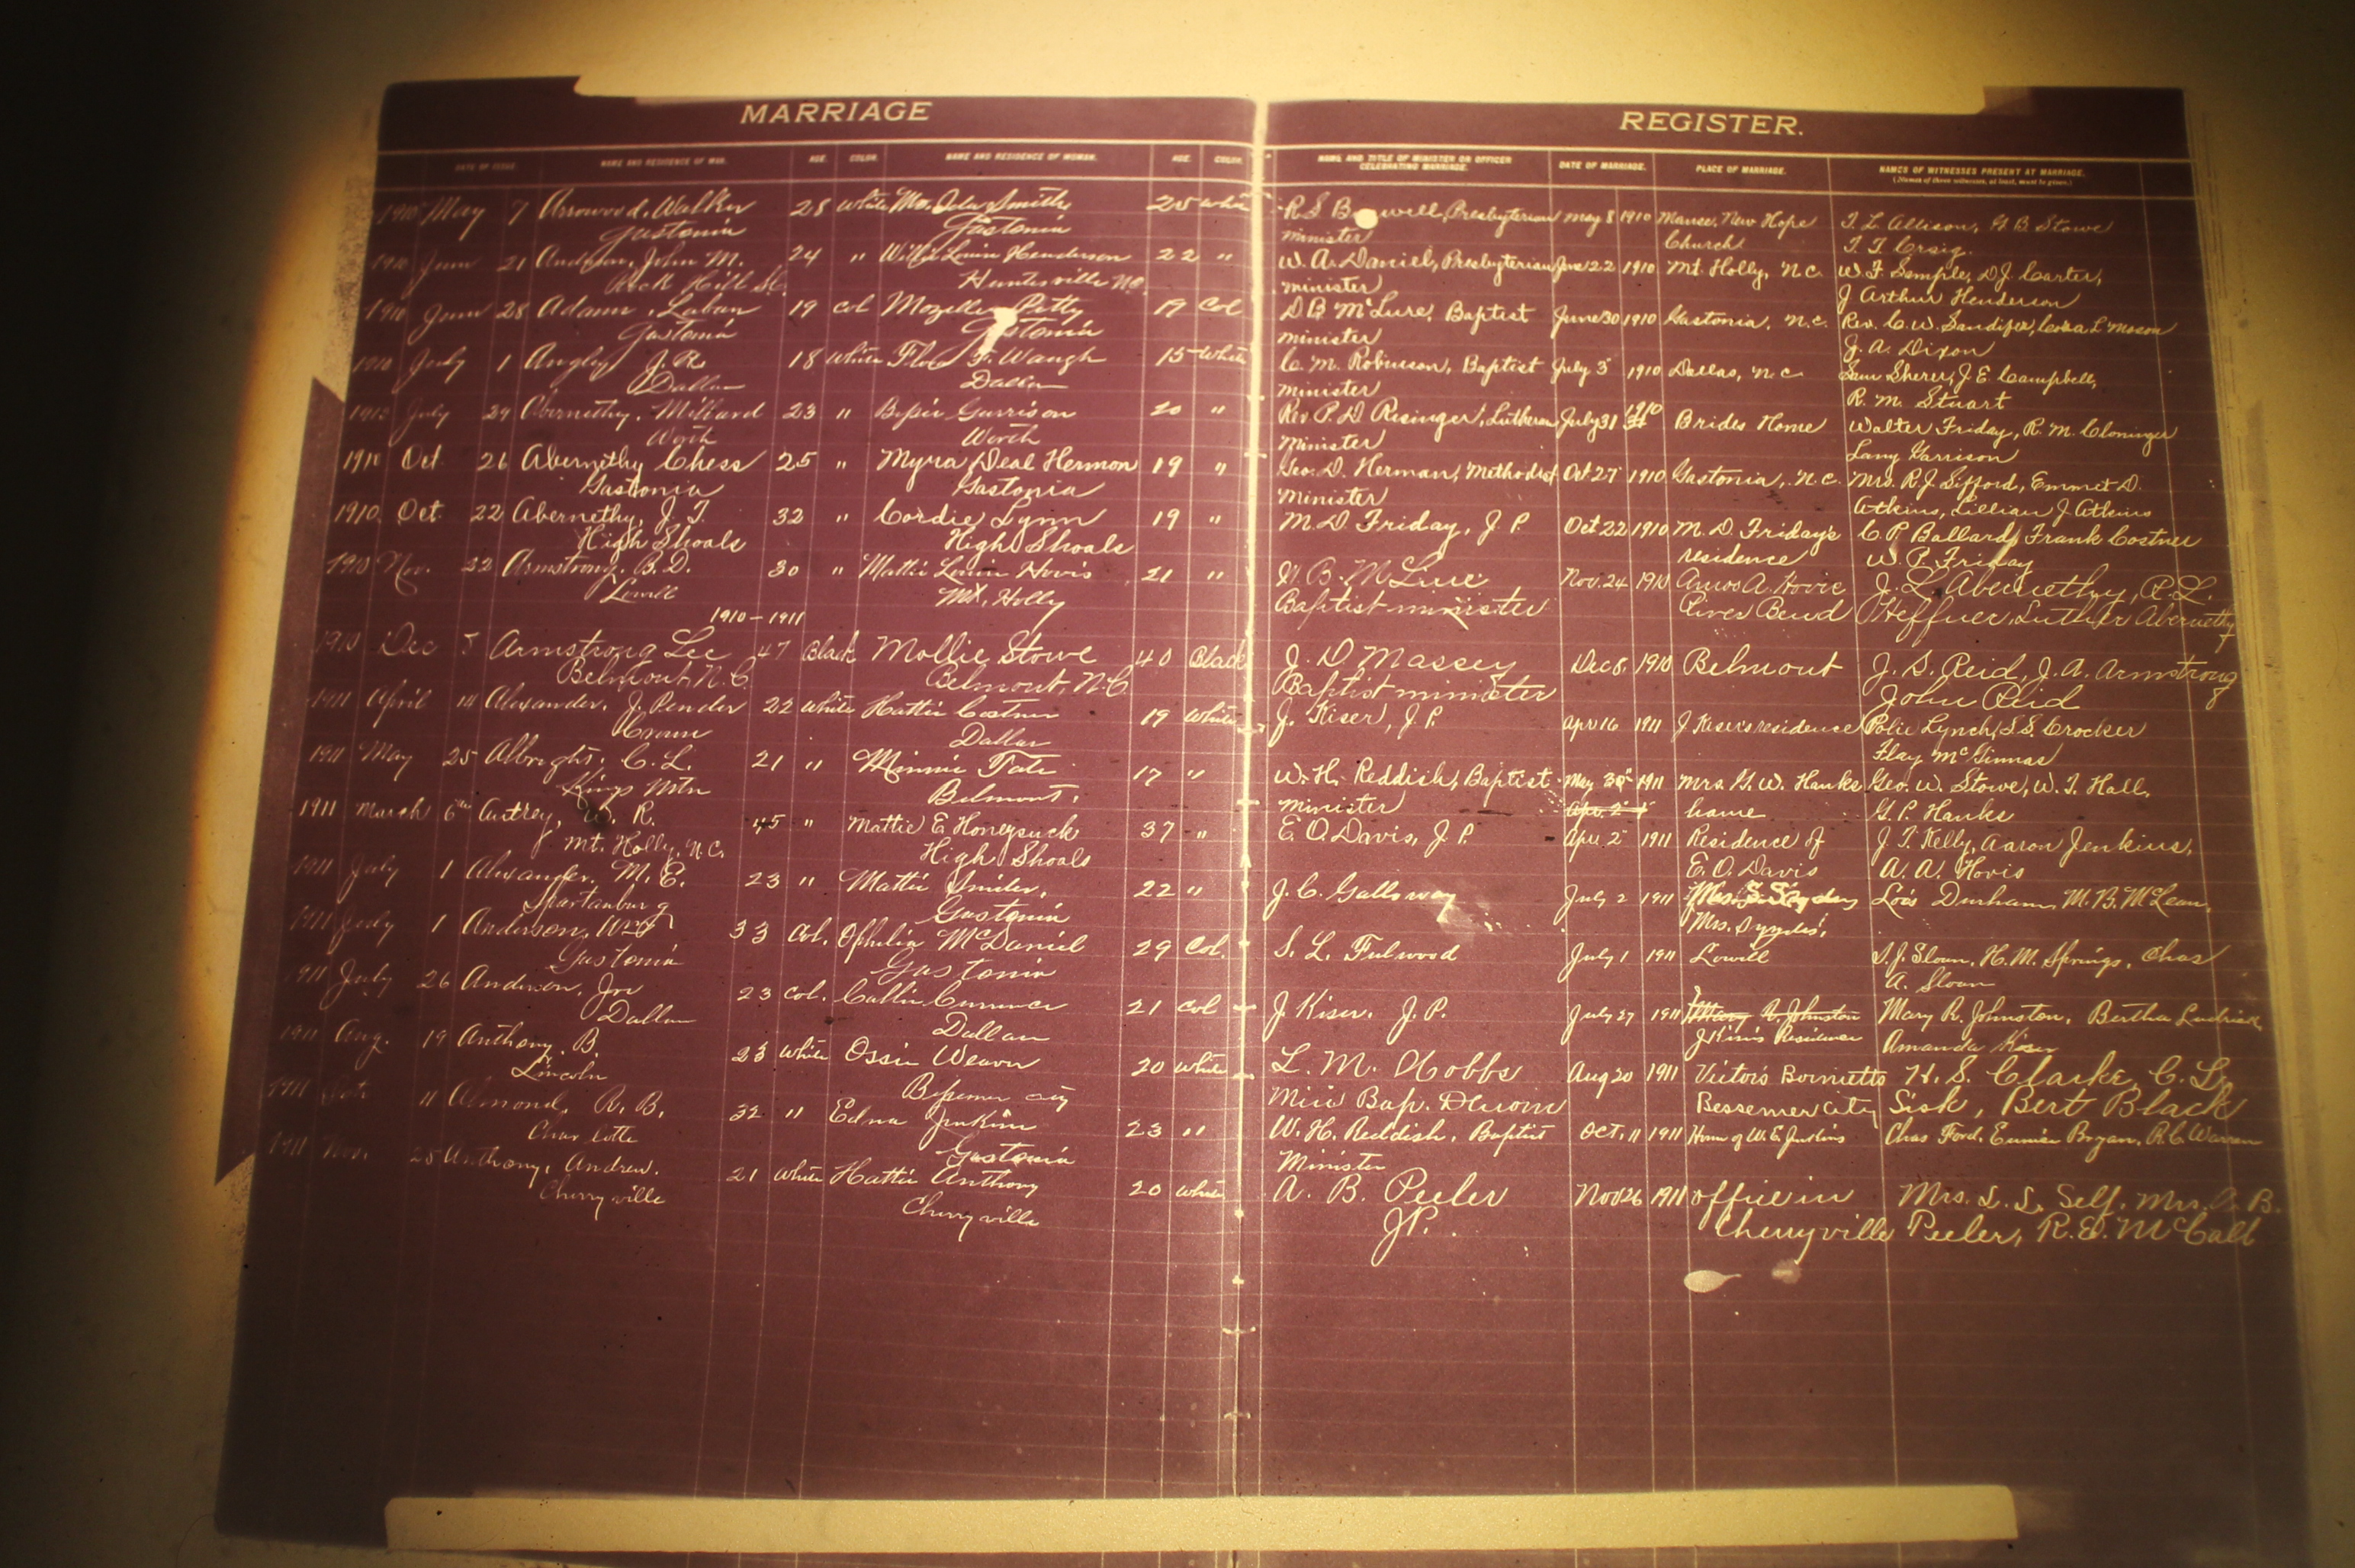 MARRIAGE
REGISTER.
DATE OF ISSUE. NAME AND RESIDENCE OF MAN. AGE. COLOR. NAME AND RESIDENCE OF WOMAN. AGE. COLOR. NAME AND TITLE OF MINISTER OR OFFICER DATE OF MARRIAGE. PLACE OF MARRIAGE. NAMES OF WITNESSES PRESENT AT MARRIAGE.
CELEBRATING MARRIAGE. (Names of three witnesses, at least, must be given.)
1910 May 7 Arrowood, Walker 28 white Ida Smith 25 white R S B well, Presbyterian May 8 1910 Manse, New Hope T. L. Allison, G B. Stowe
Gastonia Gastonia minister Church T. T. Craig.
1910 June 21 John M. 24 " Henderson 22 " W. A. Daniel, Presbyterian June 22 1910 Mt. Holly, N.C. W. F. Semple, D J. Carter,
Rock Hill S.C. Huntersville N.C. minister J Arthur Henderson
1910 June 28 Adams, Laban 19 col Mozelle Petty 17 Col D B McLure, Baptist June 30 1910 Gastonia, N.C. Rev. C. W. Sandifer, Cora L Mason
Gastonia Gastonia minister J. A. Dixon
1910 July 1 J. R. 18 white F. Waugh 15 white C. M. Robinson, Baptist July 3 1910 Dallas, N.C. Sam Sherer, J. E. Campbell,
Dallas Dallas minister R. M. Stuart
1910 July 29 Abernethy, Millard 23 " Bessie Garrison 20 " Rev P. D. Risinger, Lutheran July 31 1910 Brides Home Walter Friday, R. M. Cloninger
Worth Worth minister Garrison
1910 Oct. 26 Abernethy Chess 25 " Myra Deal Hermon 19 " Geo. D. Herman, Methodist Oct 27 1910 Gastonia, N.C. Mrs. R. J Sifford, Emmet D.
Gastonia Gastonia minister Atkins, Lillian J Atkins
1910 Oct. 22 Abernethy, J. T. 32 " Cordie Lynn 19 " M. D Friday, J P. Oct 22 1910 M. D. Friday's C. P. Ballard, Frank Costner
High Shoals High Shoals residence W. P. Friday
1910 Nov. 22 Armstrong, B. D. 30 " Mattie Hovis 21 " B. McLure Nov. 24 1910 Amos A. Hovis J. L. Abernethy, P. L.
Lowell Mt. Holly Baptist minister River Bend Heffner, Luther Abernethy
1910 – 1911
1910 Dec 5 Armstrong Lee 47 Black Mollie Stowe 40 Black J. D Massey Dec 8. 1910 Belmont J. S. Reid, J. A. Armstrong
Belmont, N.C. Belmont, N.C. Baptist minister John Reid
1911 April 14 Alexander, J. Pender 22 white Hattie Costner 19 white J. Kiser, J. P. Apr 16 1911 J Kiser's residence Polie Lynch, S. S. Crocker
Dallas Flay McGinnas
1911 May 25 Albright, C. L. 21 " Minnie Tate 17 " W. H. Reddish, Baptist May 30 1911 Mrs. G. W. Hanks Geo. W. Stowe, W. T. Hall,
Kings Mtn Belmont. minister home G. P. Hanks
1911 March 6th Autrey, R. 45 " Mattie E Honeysuck 37 " E. O. Davis, J. P. Apr 2 1911 Residence of J. T. Kelly, Aaron Jenkins,
Mt. Holly, N.C. High Shoals E. O. Davis A. A. Hovis
1911 July 1 Alexander, M. E. 23 " Mattie Snider, 22 " J. C. Galloway July 2 1911 Lois Durham, M. B. McLean,
Spartanburg Gastonia Mrs.
1911 July 1 Anderson, 33 Col. Ophelia McDaniel 29 Col. S. L. Fulwood July 1 1911 Lowell S. J. Sloan, H. M. Springs, Chas
Gastonia Gastonia A. Sloan
1911 July 26 Anderson, 23 Col. Callie 21 Col J Kiser. J. P. July 27 1911 Mary R. Johnston Mary R. Johnston, Bertha
Dallas Dallas J Kiser's Residence Amanda Kiser
1911 Aug. 19 Anthony, B 23 white Ossie Weaver 20 white L. M. Hobbs Aug 20 1911 H. S. Clarke, C. L.
Lincoln Bessemer City Bap. Bessemer City Sisk, Bert Black
1911 11 Almond, R. B. 32 " Edna Jenkins 23 " W. H. Reddish, Baptist Oct. 11 1911 Home of W. E. Jenkins Chas Ford, Bryan, R. C. Warren
Charlotte Gastonia Minister
1911 Nov. 25 Anthony, Andrew. 21 white Hattie Anthony 20 white A. B. Peeler Nov 26 1911 office in Mrs. L. L. Self, Mrs. B.
Cherryville Cherryville J.P. Cherryville Peeler, R. E. McCall